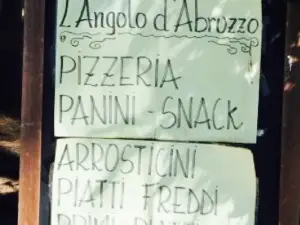 L'Angolo d'Abruzzo
PIZZERIA
PANINI - SNACK
ARROSTICINI
PIATTI FREDDI
PRIMI